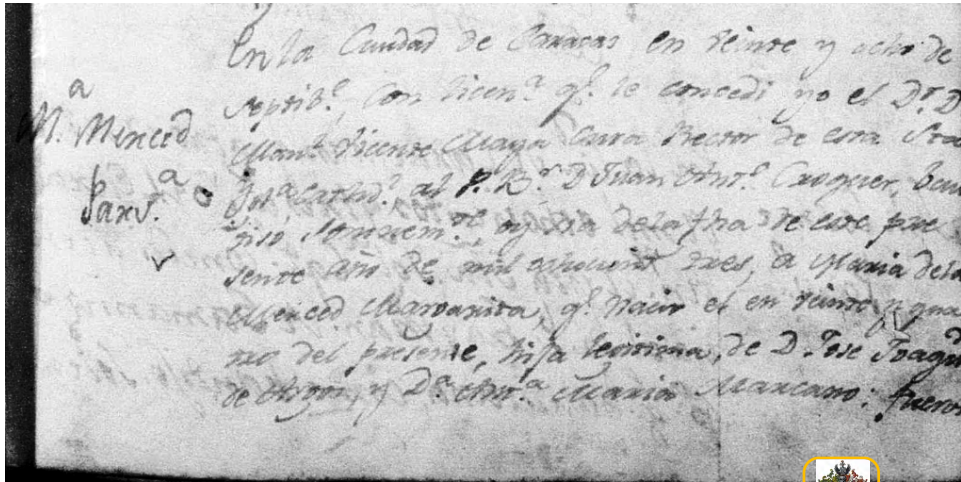 En la Ciudad de Caracas en veinte y ocho de
Septib.e, con licen.a q.e le concedi yo el D.r D.
M.a Merced
Man.l Vicente Maya Cura Rector de esta Sta
Parv.a
Ig.a Catred.l al P. B.r D Juan Ant.o bau
tisó solemnem.te, oy dia de la fha de este pre
sente año de mil ochocient tres, a Maria dela
Merced Margarita, q.e nació el en veinte y qua
tro del presente, hija legitima, de D. Jose Joaqu
de y D.a Ant.a Maria Marcano: fueron